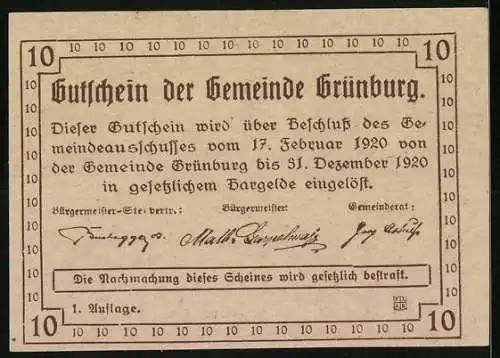 10 10 10 10 10 10 10 10 10 10 10 10 10
Gutschein der Gemeinde Grünburg.
Dieser Gutschein wird über Beschluß des Ge-
meindeausschusses vom 17. Februar 1920 von
der Gemeinde Grünburg bis 31. Dezember 1920
in gesetzlichem Bargelde eingelöst.
Bürgermeister-Stellvertr.: Bürgermeister: Gemeinderat:
Die Nachmachung dieses Scheines wird gesetzlich bestraft.
1. Auflage.
10 10 10 10 10 10 10 10 10 10 10 10 10